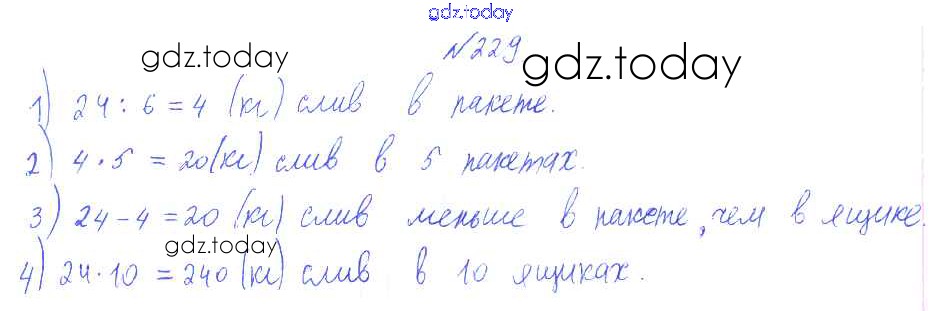 gdz.today
№229
gdz.today gdz.today
1) 24 : 6 = 4 (кг) слив в пакете.
2) 4 · 5 = 20 (кг) слив в 5 пакетах.
3) 24 - 4 = 20 (кг) слив меньше в пакете, чем в ящике.
gdz.today
4) 24 · 10 = 240 (кг) слив в 10 ящиках.